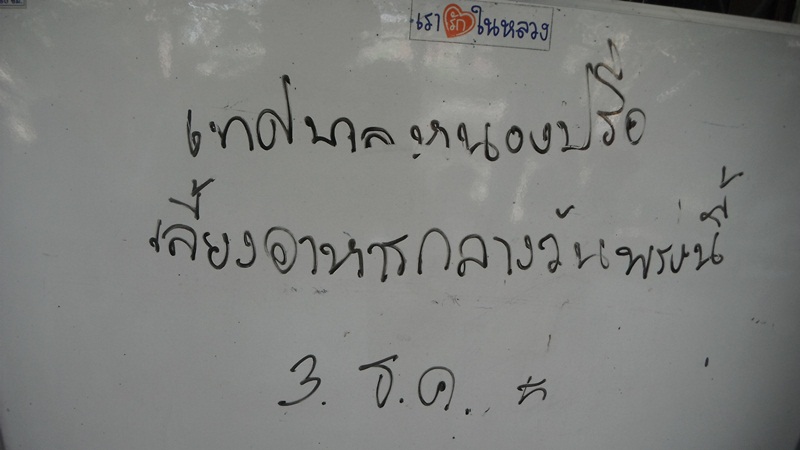 เรารักในหลวง
เทศบาลหนองปรือ
เลี้ยงอาหารกลางวันพรุ่งนี้
3. ธ.ค.